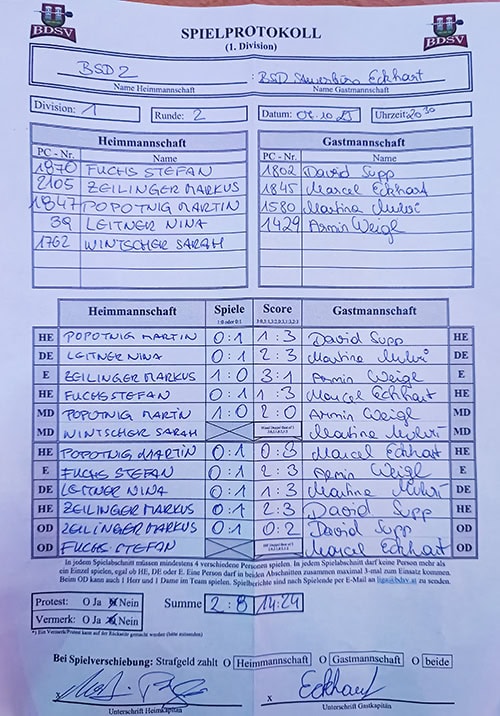 BDSV
BDSV
SPIELPROTOKOLL
(1. Division)
BSD2 : BSD Eckhart
Name Heimmannschaft Name Gastmannschaft
Division: 1 Runde: 2 Datum: Uhrzeit: 20 30
Heimmannschaft Gastmannschaft
PC - Nr. Name PC - Nr. Name
1870 FUCHS STEFAN 1802 David Supp
2105 ZEILINGER MARKUS 1845 Marcel Eckhart
1847 POPOTNIG MARTIN 1580 Martina
39 LEITNER NINA 1429 Armin Weigl
1762 WINTSCHER SARAH
Heimmannschaft Spiele Score Gastmannschaft
1:0 oder 0:1
HE POPOTNIG MARTIN 0:1 1:3 David Supp HE
DE LEITNER NINA 0:1 2:3 Martina DE
E ZEILINGER MARKUS 1:0 3:1 Armin Weigl E
HE FUCHS STEFAN 0:1 1:3 Marcel Eckhart HE
MD POPOTNIG MARTIN 1:0 2:0 Armin Weigl MD
MD WINTSCHER SARAH Martina MD
HE POPOTNIG MARTIN 0:1 0:3 Marcel Eckhart HE
E FUCHS STEFAN 0:1 2:3 Armin Weigl E
DE LEITNER NINA 0:1 1:3 Martina DE
HE ZEILINGER MARKUS 0:1 2:3 David Supp HE
OD ZEILINGER MARKUS 0:1 0:2 David Supp OD
OD FUCHS STEFAN Marcel Eckhart OD
In jedem Spielabschnitt müssen mindestens 4 verschiedene Personen spielen. In jedem Spielabschnitt darf keine Person mehr als
ein Einzel spielen, egal ob HE, DE oder E. Eine Person darf in beiden Abschnitten zusammen maximal 3-mal zum Einsatz kommen.
Beim OD kann auch 1 Herr und 1 Dame im Team spielen. Spielberichte sind nach Spielende per E-Mail an liga@bdsv.at zu senden.
Protest: O Ja Nein Summe 2:8 14:24
Vermerk: O Ja Nein
*) Ein Vermerk/Protest kann auf der Rückseite gemacht werden (bitte ankreuzen)
Bei Spielverschiebung: Strafgeld zahlt O Heimmannschaft O Gastmannschaft O beide
x x Eckhart
Unterschrift Heimkapitän Unterschrift Gastkapitän